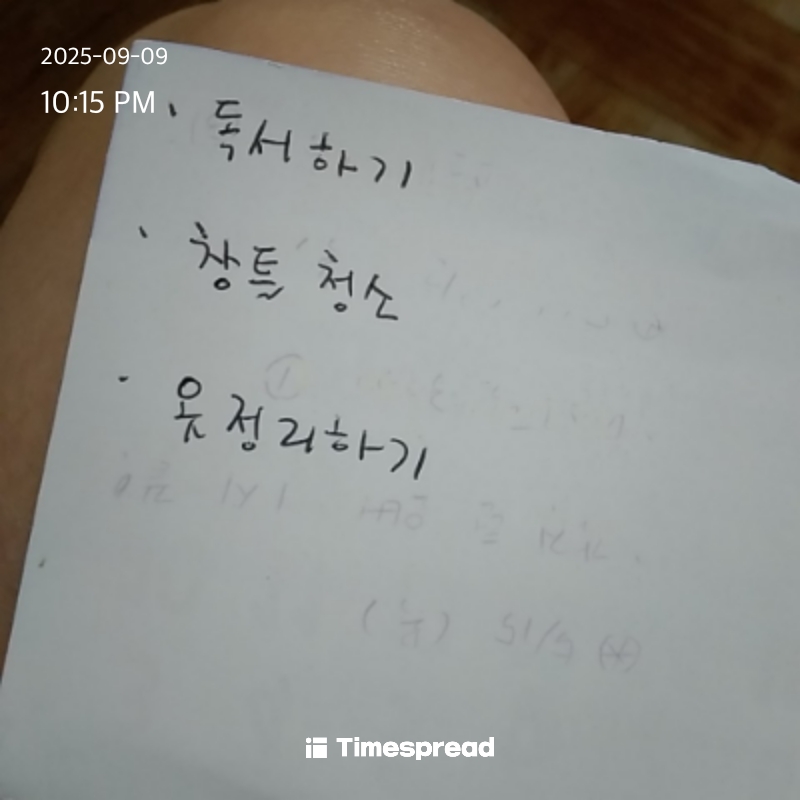 2025-09-09
10:15 PM
· 독서하기
· 창틀 청소
· 옷정리하기
Timespread